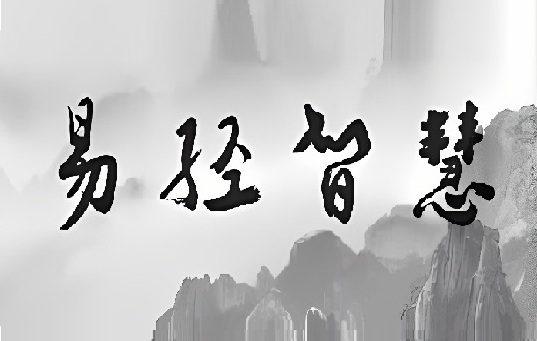 易经智慧